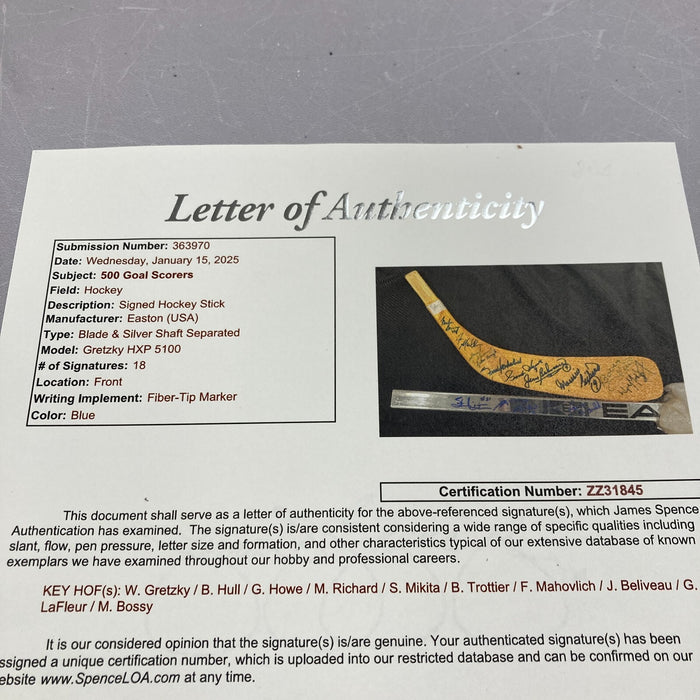 Letter of Authenticity
Submission Number: 363970
Date: Wednesday, January 15, 2025
Subject: 500 Goal Scorers
Field: Hockey
Description: Signed Hockey Stick
Manufacturer: Easton (USA)
Type: Blade & Silver Shaft Separated
Model: Gretzky HXP 5100
# of Signatures: 18
Location: Front
Writing Implement: Fiber-Tip Marker
Color: Blue
Certification Number: ZZ31845
This document shall serve as a letter of authenticity for the above-referenced signature(s), which James Spence
Authentication has examined. The signature(s) is/are consistent considering a wide range of specific qualities including
slant, flow, pen pressure, letter size and formation, and other characteristics typical of our extensive database of known
exemplars we have examined throughout our hobby and professional careers.
KEY HOF(s): W. Gretzky / B. Hull / G. Howe / M. Richard / S. Mikita / B. Trottier / F. Mahovlich / J. Beliveau / G.
LaFleur / M. Bossy
It is our considered opinion that the signature(s) is/are genuine. Your authenticated signature(s) has been
ssigned a unique certification number, which is uploaded into our restricted database and can be confirmed on our
ebsite www.SpenceLOA.com at any time.